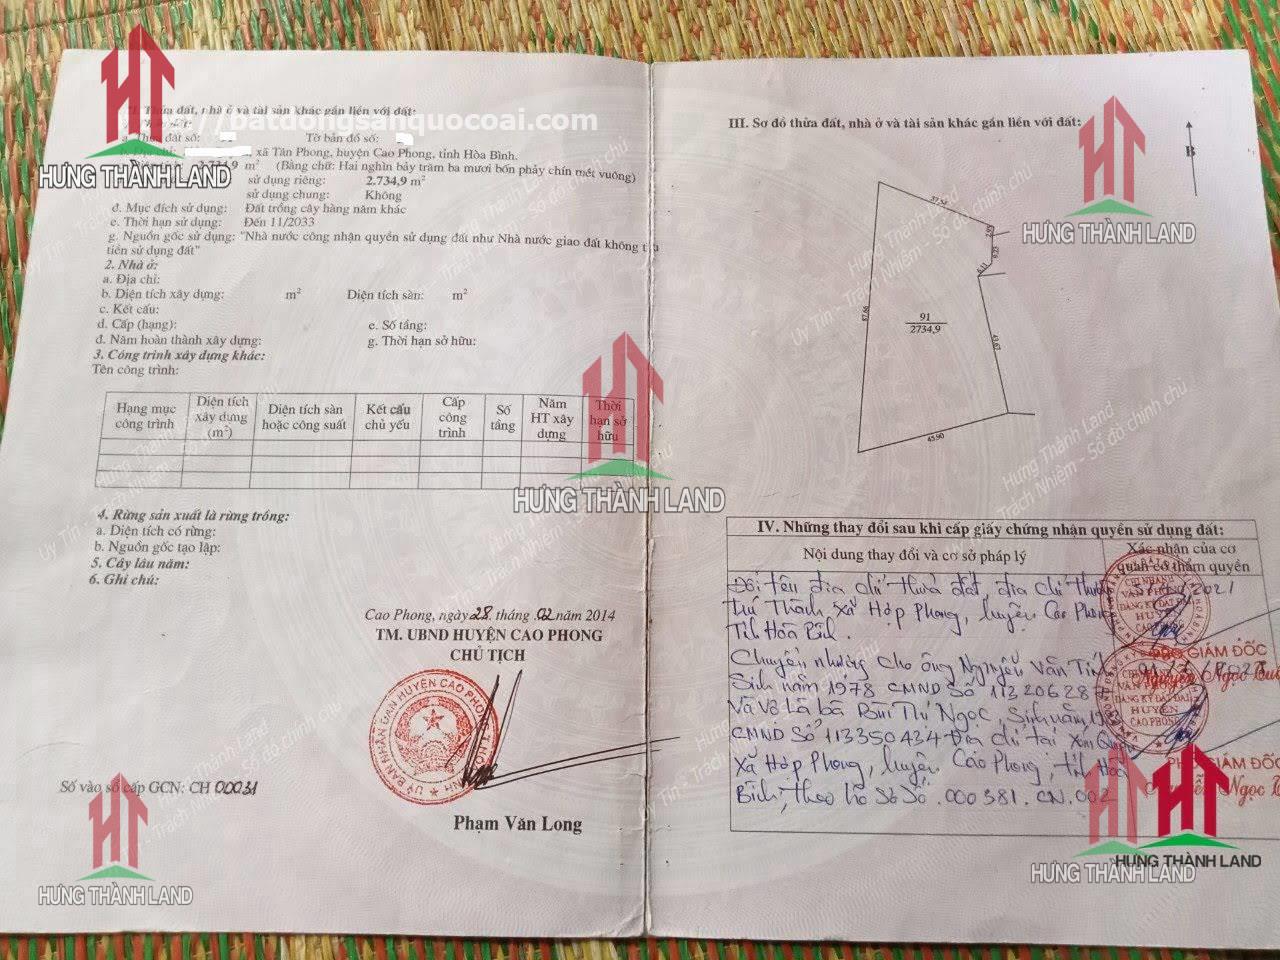 II. Thửa đất, nhà ở và tài sản khác gắn liền với đất:
https://batdongsanquocoai.com
a. Thửa đất số: Tờ bản đồ số:
b. Địa chỉ: xã Tân Phong, huyện Cao Phong, tỉnh Hòa Bình.
2.734,9 m² (Bằng chữ: Hai nghìn bảy trăm ba mươi bốn phảy chín mét vuông)
sử dụng riêng: 2.734,9 m²
sử dụng chung: Không
đ. Mục đích sử dụng: Đất trồng cây hàng năm khác
e. Thời hạn sử dụng: Đến 11/2033
g. Nguồn gốc sử dụng: "Nhà nước công nhận quyền sử dụng đất như Nhà nước giao đất không thu
tiền sử dụng đất"
2. Nhà ở:
a. Địa chỉ:
b. Diện tích xây dựng: m² Diện tích sàn: m²
c. Kết cấu:
d. Cấp (hạng): e. Số tầng:
đ. Năm hoàn thành xây dựng: g. Thời hạn sở hữu:
3. Công trình xây dựng khác:
Tên công trình:
Hạng mục công trình
Diện tích xây dựng (m²)
Diện tích sàn hoặc công suất
Kết cấu chủ yếu
Cấp công trình
Số tầng
Năm HT xây dựng
Thời hạn sở hữu
4. Rừng sản xuất là rừng trồng:
a. Diện tích có rừng:
b. Nguồn gốc tạo lập:
5. Cây lâu năm:
6. Ghi chú:
Cao Phong, ngày 28 tháng 02 năm 2014
TM. UBND HUYỆN CAO PHONG
CHỦ TỊCH
ỦY BAN NHÂN DÂN HUYỆN CAO PHONG
Số vào sổ cấp GCN: CH 00031
Phạm Văn Long
III. Sơ đồ thửa đất, nhà ở và tài sản khác gắn liền với đất:
B
87.66
43.67
45.90
91
2734,9
IV. Những thay đổi sau khi cấp giấy chứng nhận quyền sử dụng đất:
Nội dung thay đổi và cơ sở pháp lý
Xác nhận của cơ
quan có thẩm quyền
Đổi tên địa chỉ thửa đất, địa chỉ thường
trú Thành xã Hợp Phong, huyện Cao Phong
Tỉnh Hòa Bình.
Chuyển nhượng cho ông Nguyễn Văn
Sinh năm 1978 CMND Số
Và Vợ là bà Bùi Thị Ngọc, Sinh năm
CMND Số 113350434 Địa chỉ tại Xóm
Xã Hợp Phong, huyện Cao Phong, tỉnh Hòa
Bình, theo hồ sơ số 000381.CN.002
CHI NHÁNH
VĂN PHÒNG
ĐĂNG KÝ ĐẤT ĐAI
HUYỆN
CAO PHONG
GIÁM ĐỐC
Nguyễn Ngọc
GIÁM ĐỐC
Ngọc
HƯNG THÀNH LAND
HƯNG THÀNH LAND
HƯNG THÀNH LAND
HƯNG THÀNH LAND
HƯNG THÀNH LAND
HƯNG THÀNH LAND
Hưng Thành Land
Uy Tín - Trách Nhiệm - Sổ đỏ chính chủ